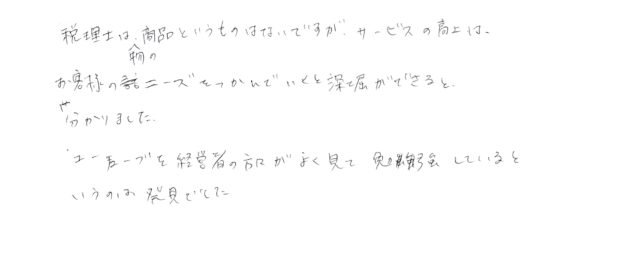 税理士は、商品というものはないですが、サービスの向上は、
お客様のニーズをつかんでいくと深掘ができると、
分かりました。
ユーチューブを経営者の方がよく見て勉強していると
いうのは発見でした